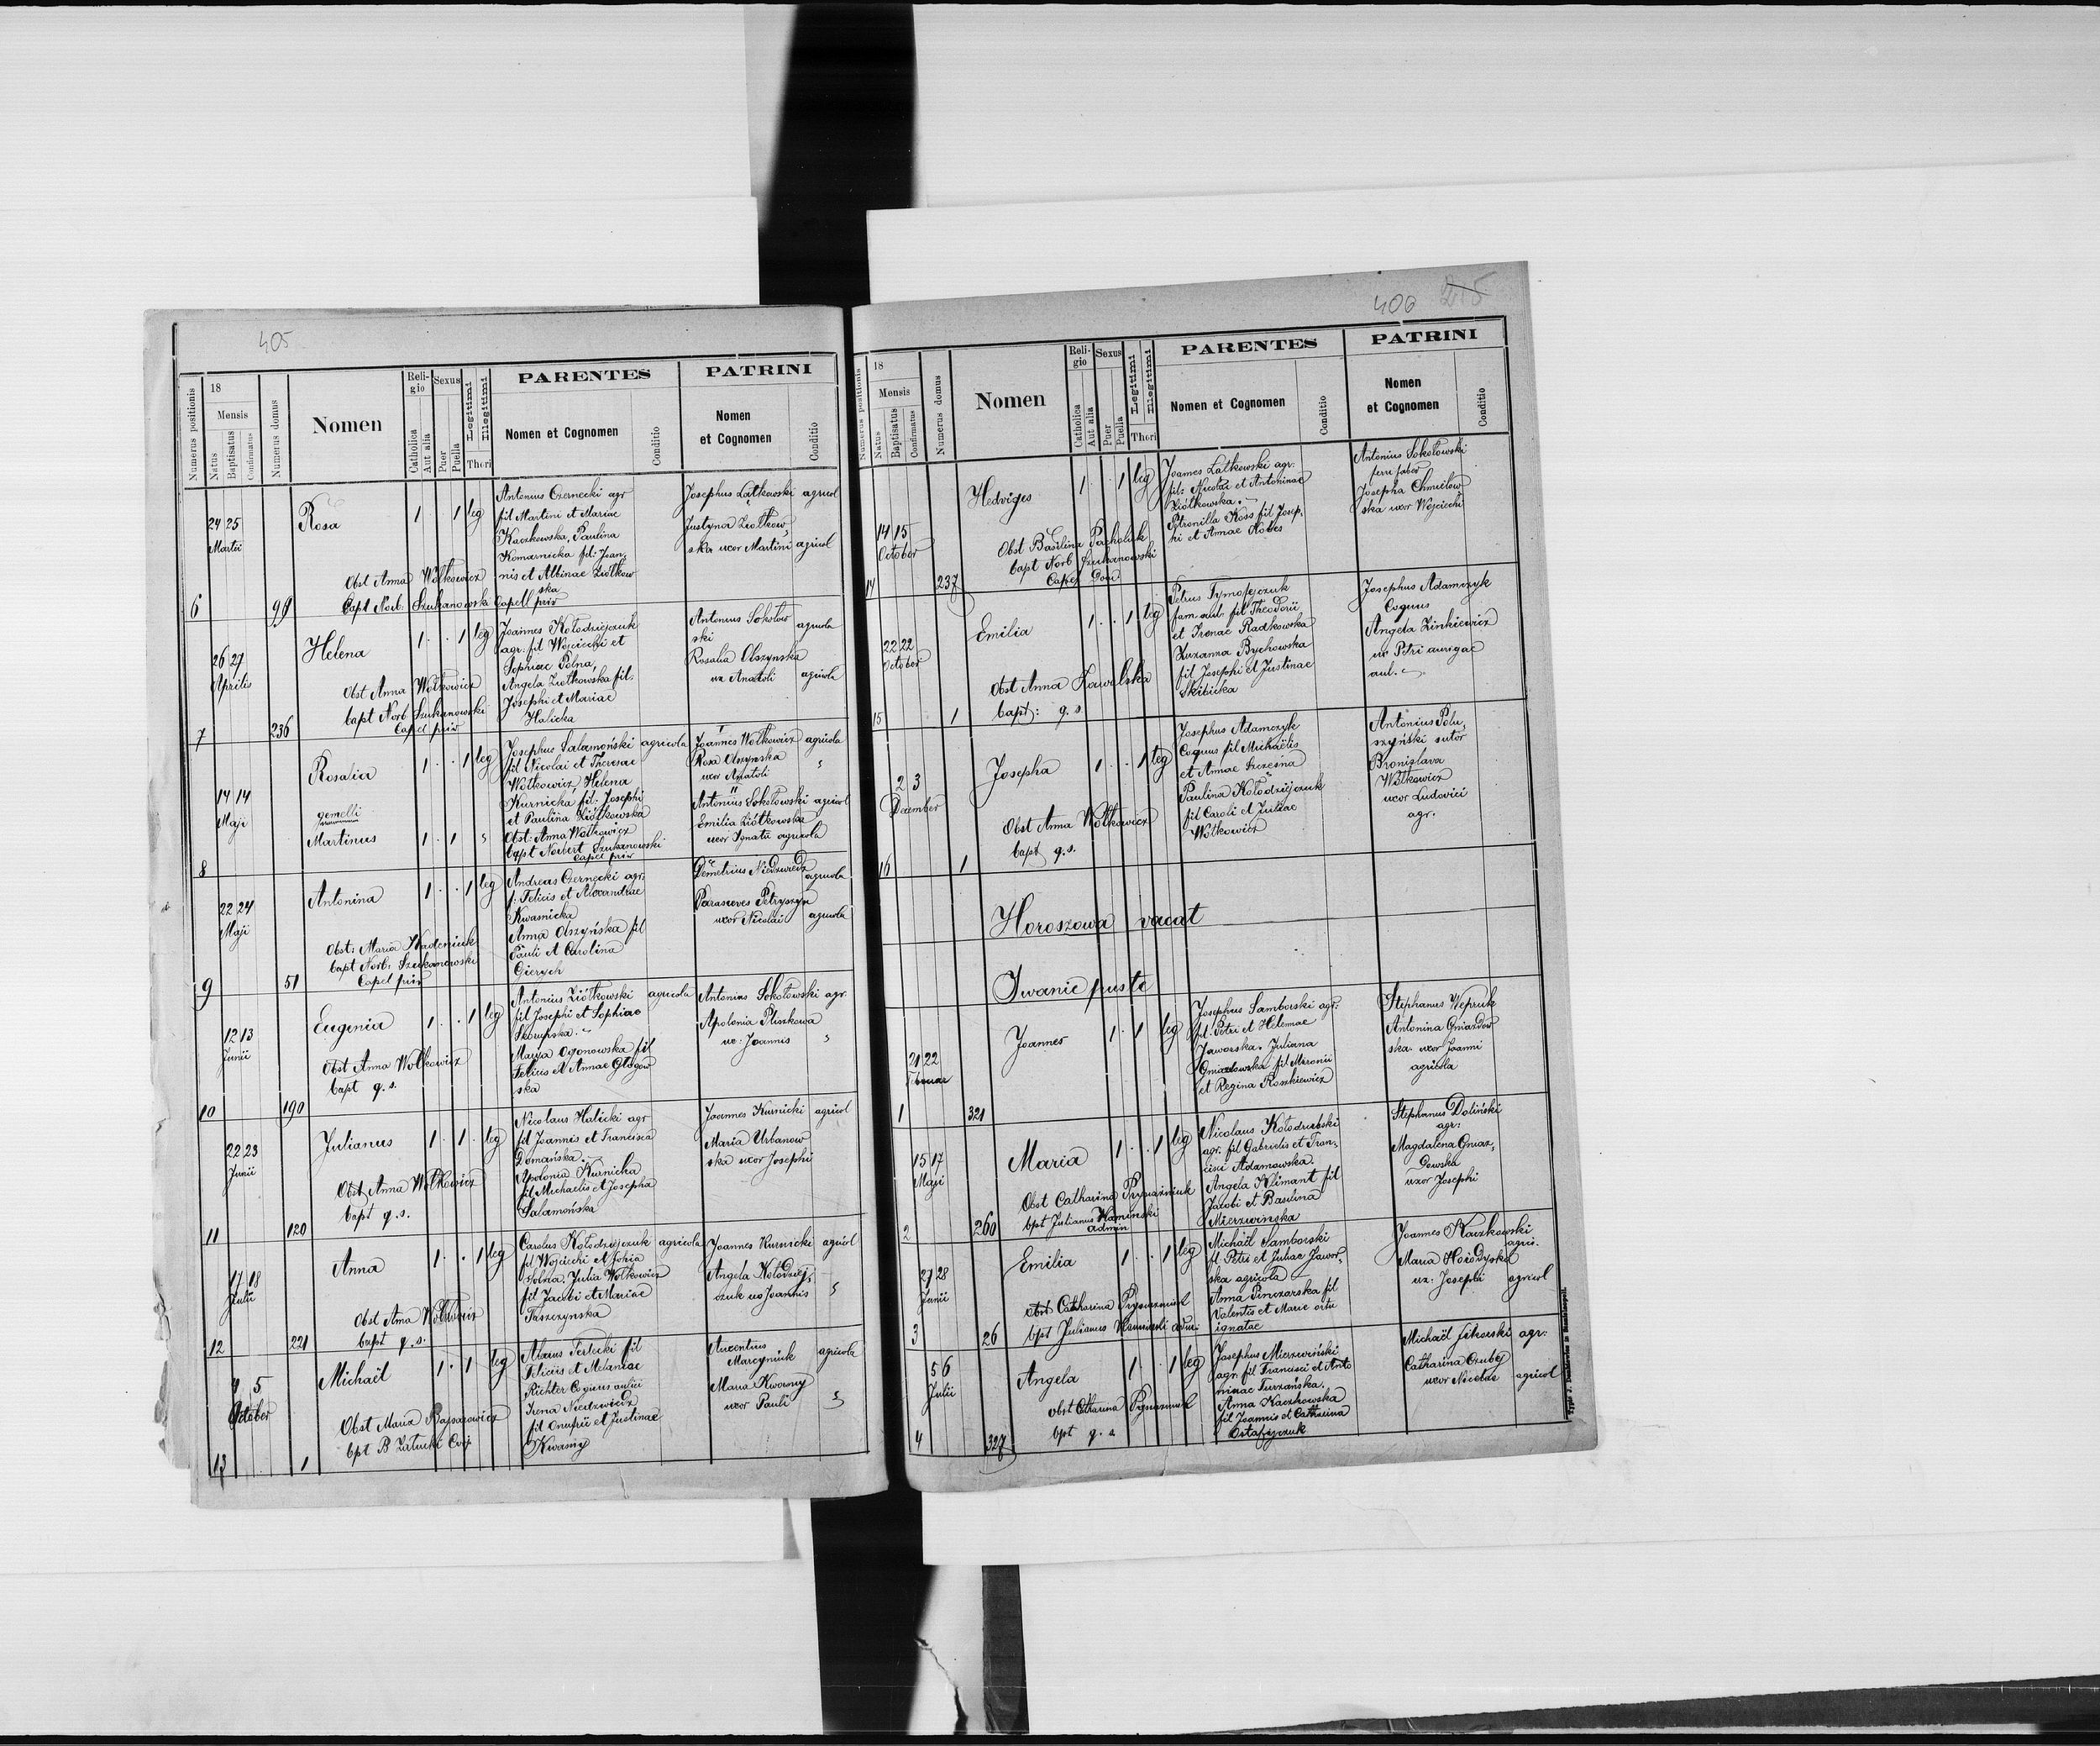 405
Numerus positionis
18
Mensis
Natus
Baptisatus
Confirmatus
Numerus domus
Nomen
Reli-
gio
Catholica
Aut alia
Sexus
Puer
Puella
Legitimi
Illegitimi
Thori
PARENTES
Nomen et Cognomen
Conditio
PATRINI
Nomen
et Cognomen
Conditio
6
24 25
Martii
99
Rosa
1 . . 1 leg
Obst Anna Wołkowicz
Bapt Norb: Szukanowski Capell priv
Antonius Czernecki agr
fil Martini et Mariae
Kaczkowska, Paulina
Komarnicka fil: Joan-
nis et Albinae Ziółkow
ska
Josephus Latkowski agricol
Justyna Ziółkow
ska uxor Martini agricol
7
26 27
Aprilis
236
Helena
1 . . 1 leg
Obst Anna Wołkowicz
bapt Norb Szukanowski
Capel priv
Joannes Kołodziejczuk
agr: fil Wojciechi et
Sophiae Polna,
Angela Ziółkowska fil.
Josephi et Mariae
Halicka
Antonius Sokołow agricola
ski
Rosalia Olszynska
ux Anatoli agricola
8
14 14
Maji
Rosalia
1 . . 1 leg
gemelli
Martinus
1 . 1 "
Josephus Salamoński agricola
fil Nicolai et Theresae
Wołkowicz, Helena
Kurnicka fil: Josephi
et Paulina Ziółkowska
Obst: Anna Wołkowicz
bapt Norbert Szukanowski
Capel priv
I
Joannes Wołkowicz agricola
Rosa Olszynska "
uxor Anatoli
II
Antonius Sokołowski agricol
Emilia Ziółkowska
uxor Ignatii agricola
9
22 24
Maji
51
Antonina
1 . . 1 leg
Obst: Maria
bapt Norb: Szukanowski
Capel priv
Andreas Czernecki agr:
f: Felicis et Alexandrae
Kwasnicka
Anna Olszyńska fil
Pauli et Carolina
Gierych
Demetrius Niedzwiedz
agricola
Parasceves Petryszyn
uxor Nicolai agricola
10
12 13
Junii
190
Eugenia
1 . . 1 leg
Obst Anna Wołkowicz
bapt q. s.
Antonius Ziółkowski agricola
fil Josephi et Sophiae
Skrupska.
Marya Ogonowska fil
Felicis et Annae Głogow
ska
Antonius Sokołowski agr.
Apolonia Pliszkowa
ux: Joannis "
11
22 23
Junii
120
Julianus
1 . 1 . leg
Obst Anna Wołkowicz
bapt q. s.
Nicolaus Halicki agr
fil Joannis et Francisca
Domańska.
Apolonia Kurnicka
fil Michaelis et Josepha
Salamońska
Joannes Kurnicki agricol
Maria Urbanow
ska uxor Josephi
12
17 18
Julii
221
Anna
1 . . 1 leg
Obst Anna Wołkowicz
bapt q. s.
Carolus Kołodziejczuk agricola
fil Wojciechi et Sophia
Polna. Julia Wołkowicz
fil Jacobi et Mariae
Taszczynska
Joannes Kurnicki agricol
Angela Kołodziej-
czuk ux Joannis "
13
4 5
October
1
Michaël
1 . 1 leg
Obst Maria Bajsarowicz
bpt B Załucki Coop
Alexius Terlecki fil
Feliciis et Melaniae
Richter Coquus aulici
Irena Niedzwiedz
fil Onufrii et Justinae
Kwasny
Auxentius
Marcyniuk agricola
Maria Kwasny
uxor Pauli "
400 215
Numerus positionis
18
Mensis
Natus
Baptisatus
Confirmatus
Numerus domus
Nomen
Reli-
gio
Catholica
Aut alia
Sexus
Puer
Puella
Legitimi
Illegitimi
Thori
PARENTES
Nomen et Cognomen
Conditio
PATRINI
Nomen
et Cognomen
Conditio
14
14 15
October
237
Hedviges
1 . . 1 leg
Obst Basilina Pacholik
bapt Norb Szukanowski
Capel Dom
Joannes Latkowski agr.
fil: Nicolai et Antoninae
Ziółkowska.
Petronilla Koss fil Josep-
hi et Annae
Antonius Sokołowski
ferri faber
Josepha Chmielow
ska uxor Wojciechi
15
22 22
October
1
Emilia
1 . . 1 leg
Obst Anna Kawalska
bapt: q. s.
Petrus Tymofejczuk
fam. aul. fil Theodorii
et Irenae Radkowska
Zuzanna Bychowska
fil Josephi et Justinae
Skibicka
Josephus Adamczyk
Coquus
Angela Zinkiewicz
ux Petri aurigae
aul.
16
2 3
December
1
Josepha
1 . . 1 leg
Obst Anna Wołkowicz
bapt q. s.
Josephus Adamczyk
Coquus fil Michaëlis
et Annae Szczesna
Paulina Kołodziejczuk
fil Caroli et Juliae
Wołkowicz
Antonius Polu
szyński sutor
Bronislava
Wołkowicz
uxor Ludovici
agr.
Horoszowa vacat
Iwanie puste
1
21 22
Februar
321
Joannes
1 . 1 leg
Josephus Samborski agr:
fil. Petri et Helenae
Jaworska. Juliana
Gniazdowska fil Mironii
et Regina Roszkiewicz
Stephanus Wepruk
Antonina Gniazdow
ska uxor Joanni
agricola
2
15 17
Maji
260
Maria
1 . . 1 leg
Obst Catharina Prysiazniuk
bpt Julianus Kaminski
admin
Nicolaus Kołodziebski
agr. fil Gabrielis et Fran-
cisci Adamowska.
Angela Klimant fil
Jacobi et Basilina
Mierzwinska
Stephanus Doliński
agr:
Magdalena Gniaz-
dowska
uxor Josephi
3
27 28
Junii
26
Emilia
1 . . 1 leg
obst Catharina Prysiazniuk
bpt Julianus Kaminski adm:
Michaël Samborski
fl Petri et Juliae Jawor-
ska agricola
Anna Pinczarska fil
Valentis et Marie ortu
ignatae
Joannes Kaczkowski
agric.
Maria Hoïodyska
ux: Josephi agricol
4
5 6
Julii
327
Angela
1 . . 1 leg
obst Catharina Prysiazniuk
bpt q. s
Josephus Mierzwiński
agr fil Francisci et Anto
ninae Turzańska.
Anna Kaczkowska
fil Joannis et Catharina
Ostafyjczuk
Michaël Sikorski agr:
Catharina Czuby
uxor Nicolae agricol